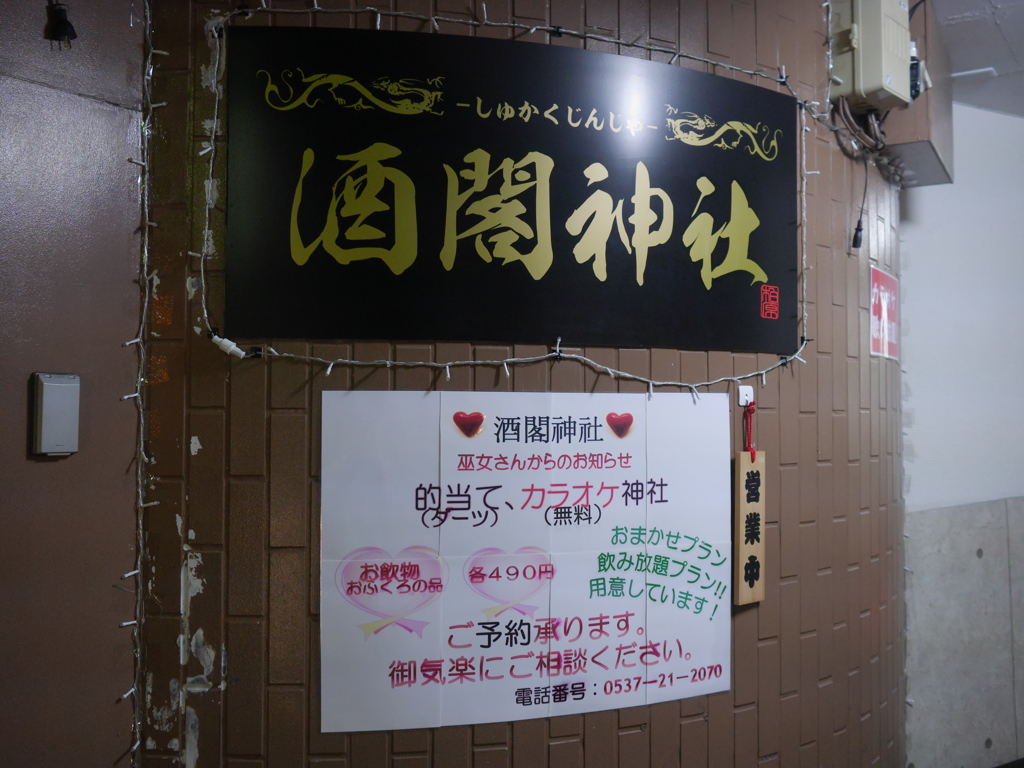 -しゅかくじんじゃ-
酒閣神社
酒閣神社
巫女さんからのお知らせ
的当て、カラオケ神社
(ダーツ) (無料)
おまかせプラン
飲み放題プラン!!
用意しています!
お飲物
おふくろの品
各490円
ご予約承ります。
御気楽にご相談ください。
電話番号:0537-21-2070
営業中